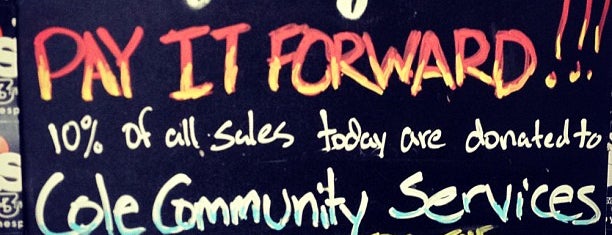 PAY IT FORWARD!!!
10% of all sales today are donated to
Cole Community Services